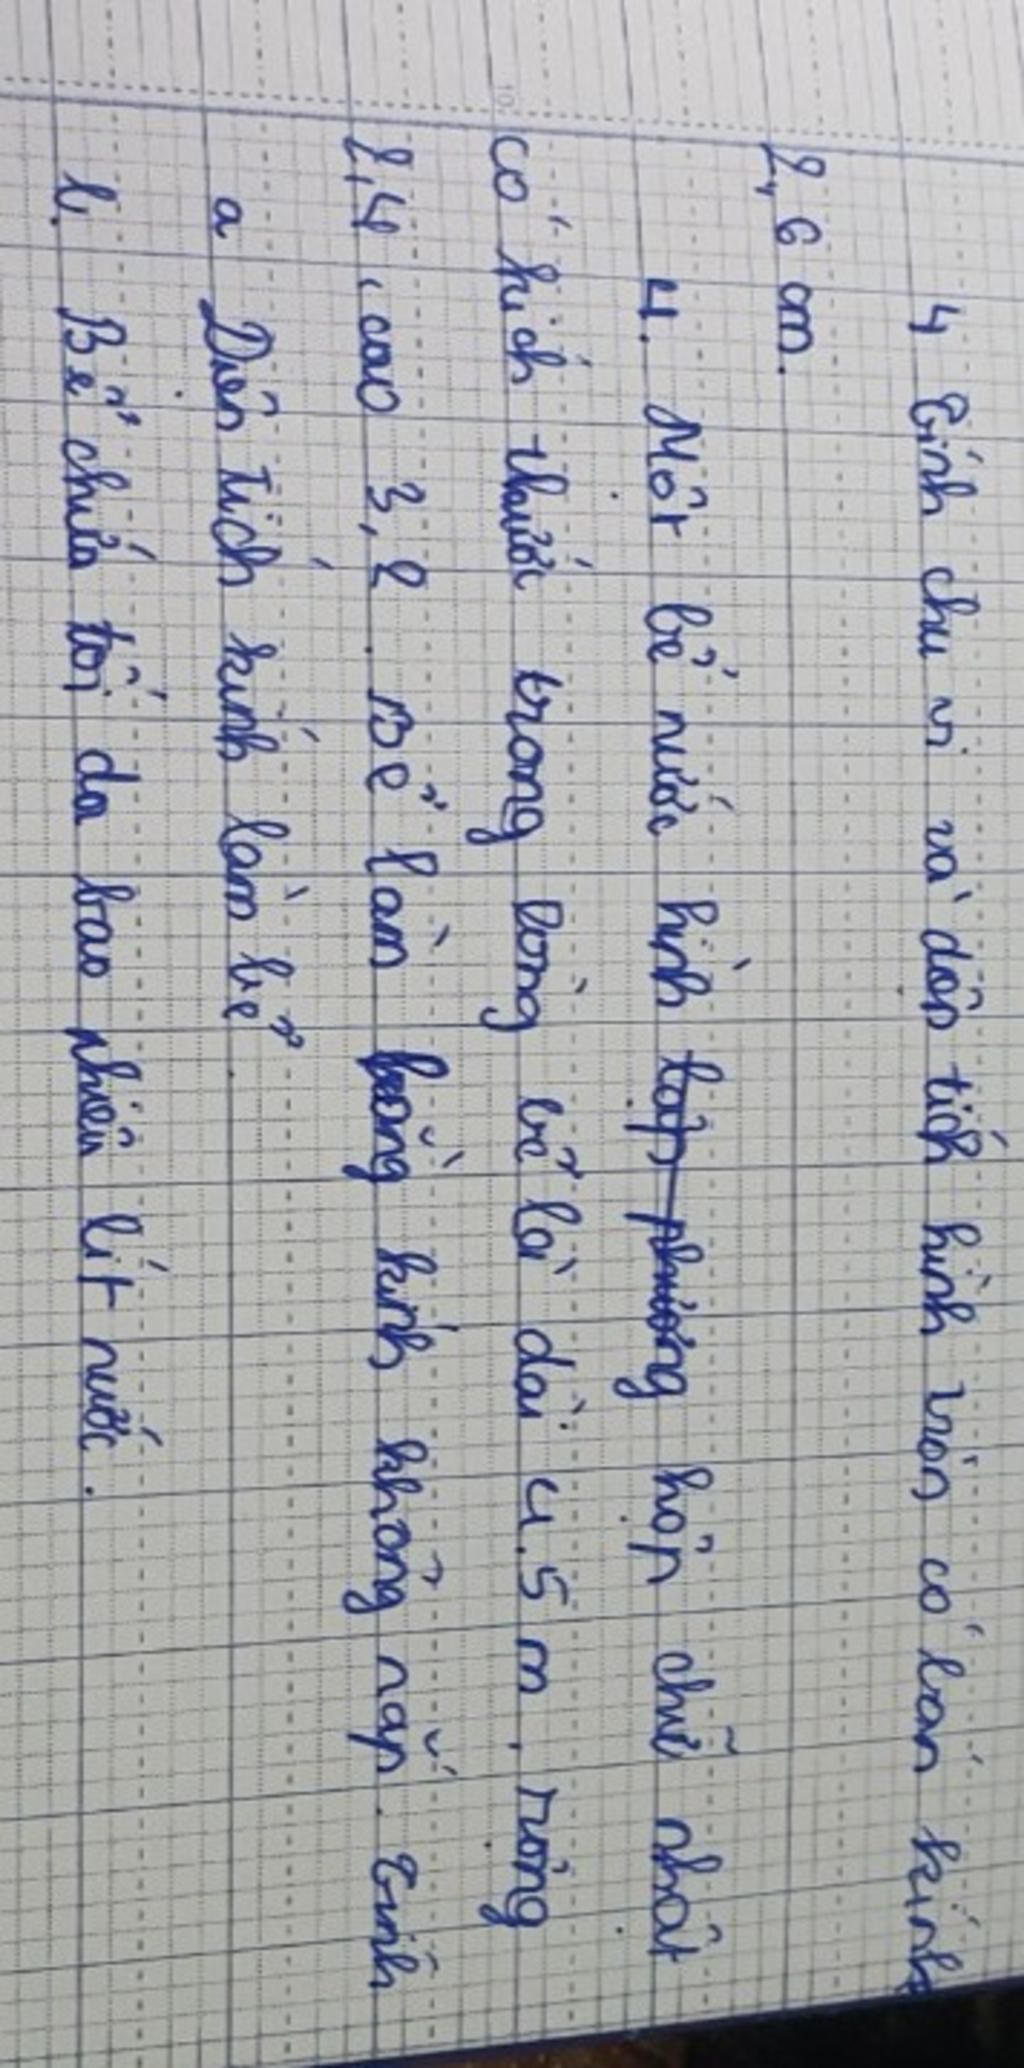 4 Tính chu vi và diện tích hình tròn có bán kính
2,6 cm.
4. Một bể nước hình tập phương hộp chữ nhật
có kích thước trong lòng bể là dài 4.5 m, rộng
2,4, cao 3,2. Bể làm bằng kính không nắp. Tính
a Diện tích kính làm bể
b. Bể chứa tối đa bao nhiêu lít nước.